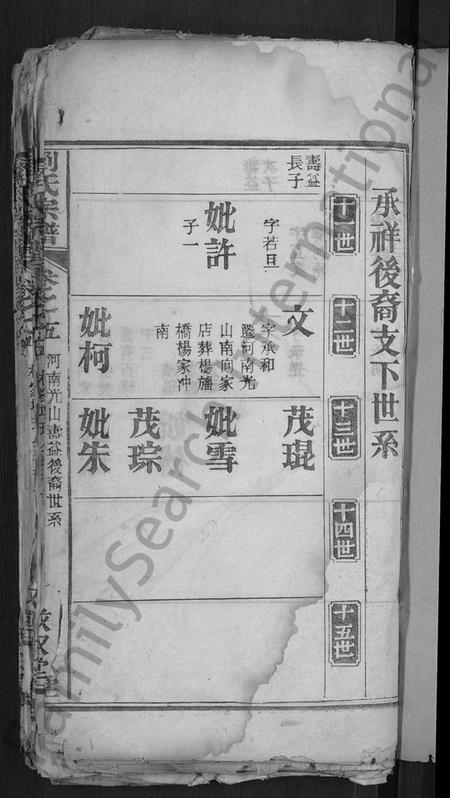 承祥後裔支下世系
十一世
十二世
十三世
十四世
十五世
壽益
長子
字若旦
妣許
子一
文
字承和
遷河南光
山南向家
店葬楊旛
橋楊家冲
南
妣柯
茂琨
妣雪
茂琮
妣朱
劉氏宗譜
卷之五
河南光山壽益後裔世系
FamilySearch International